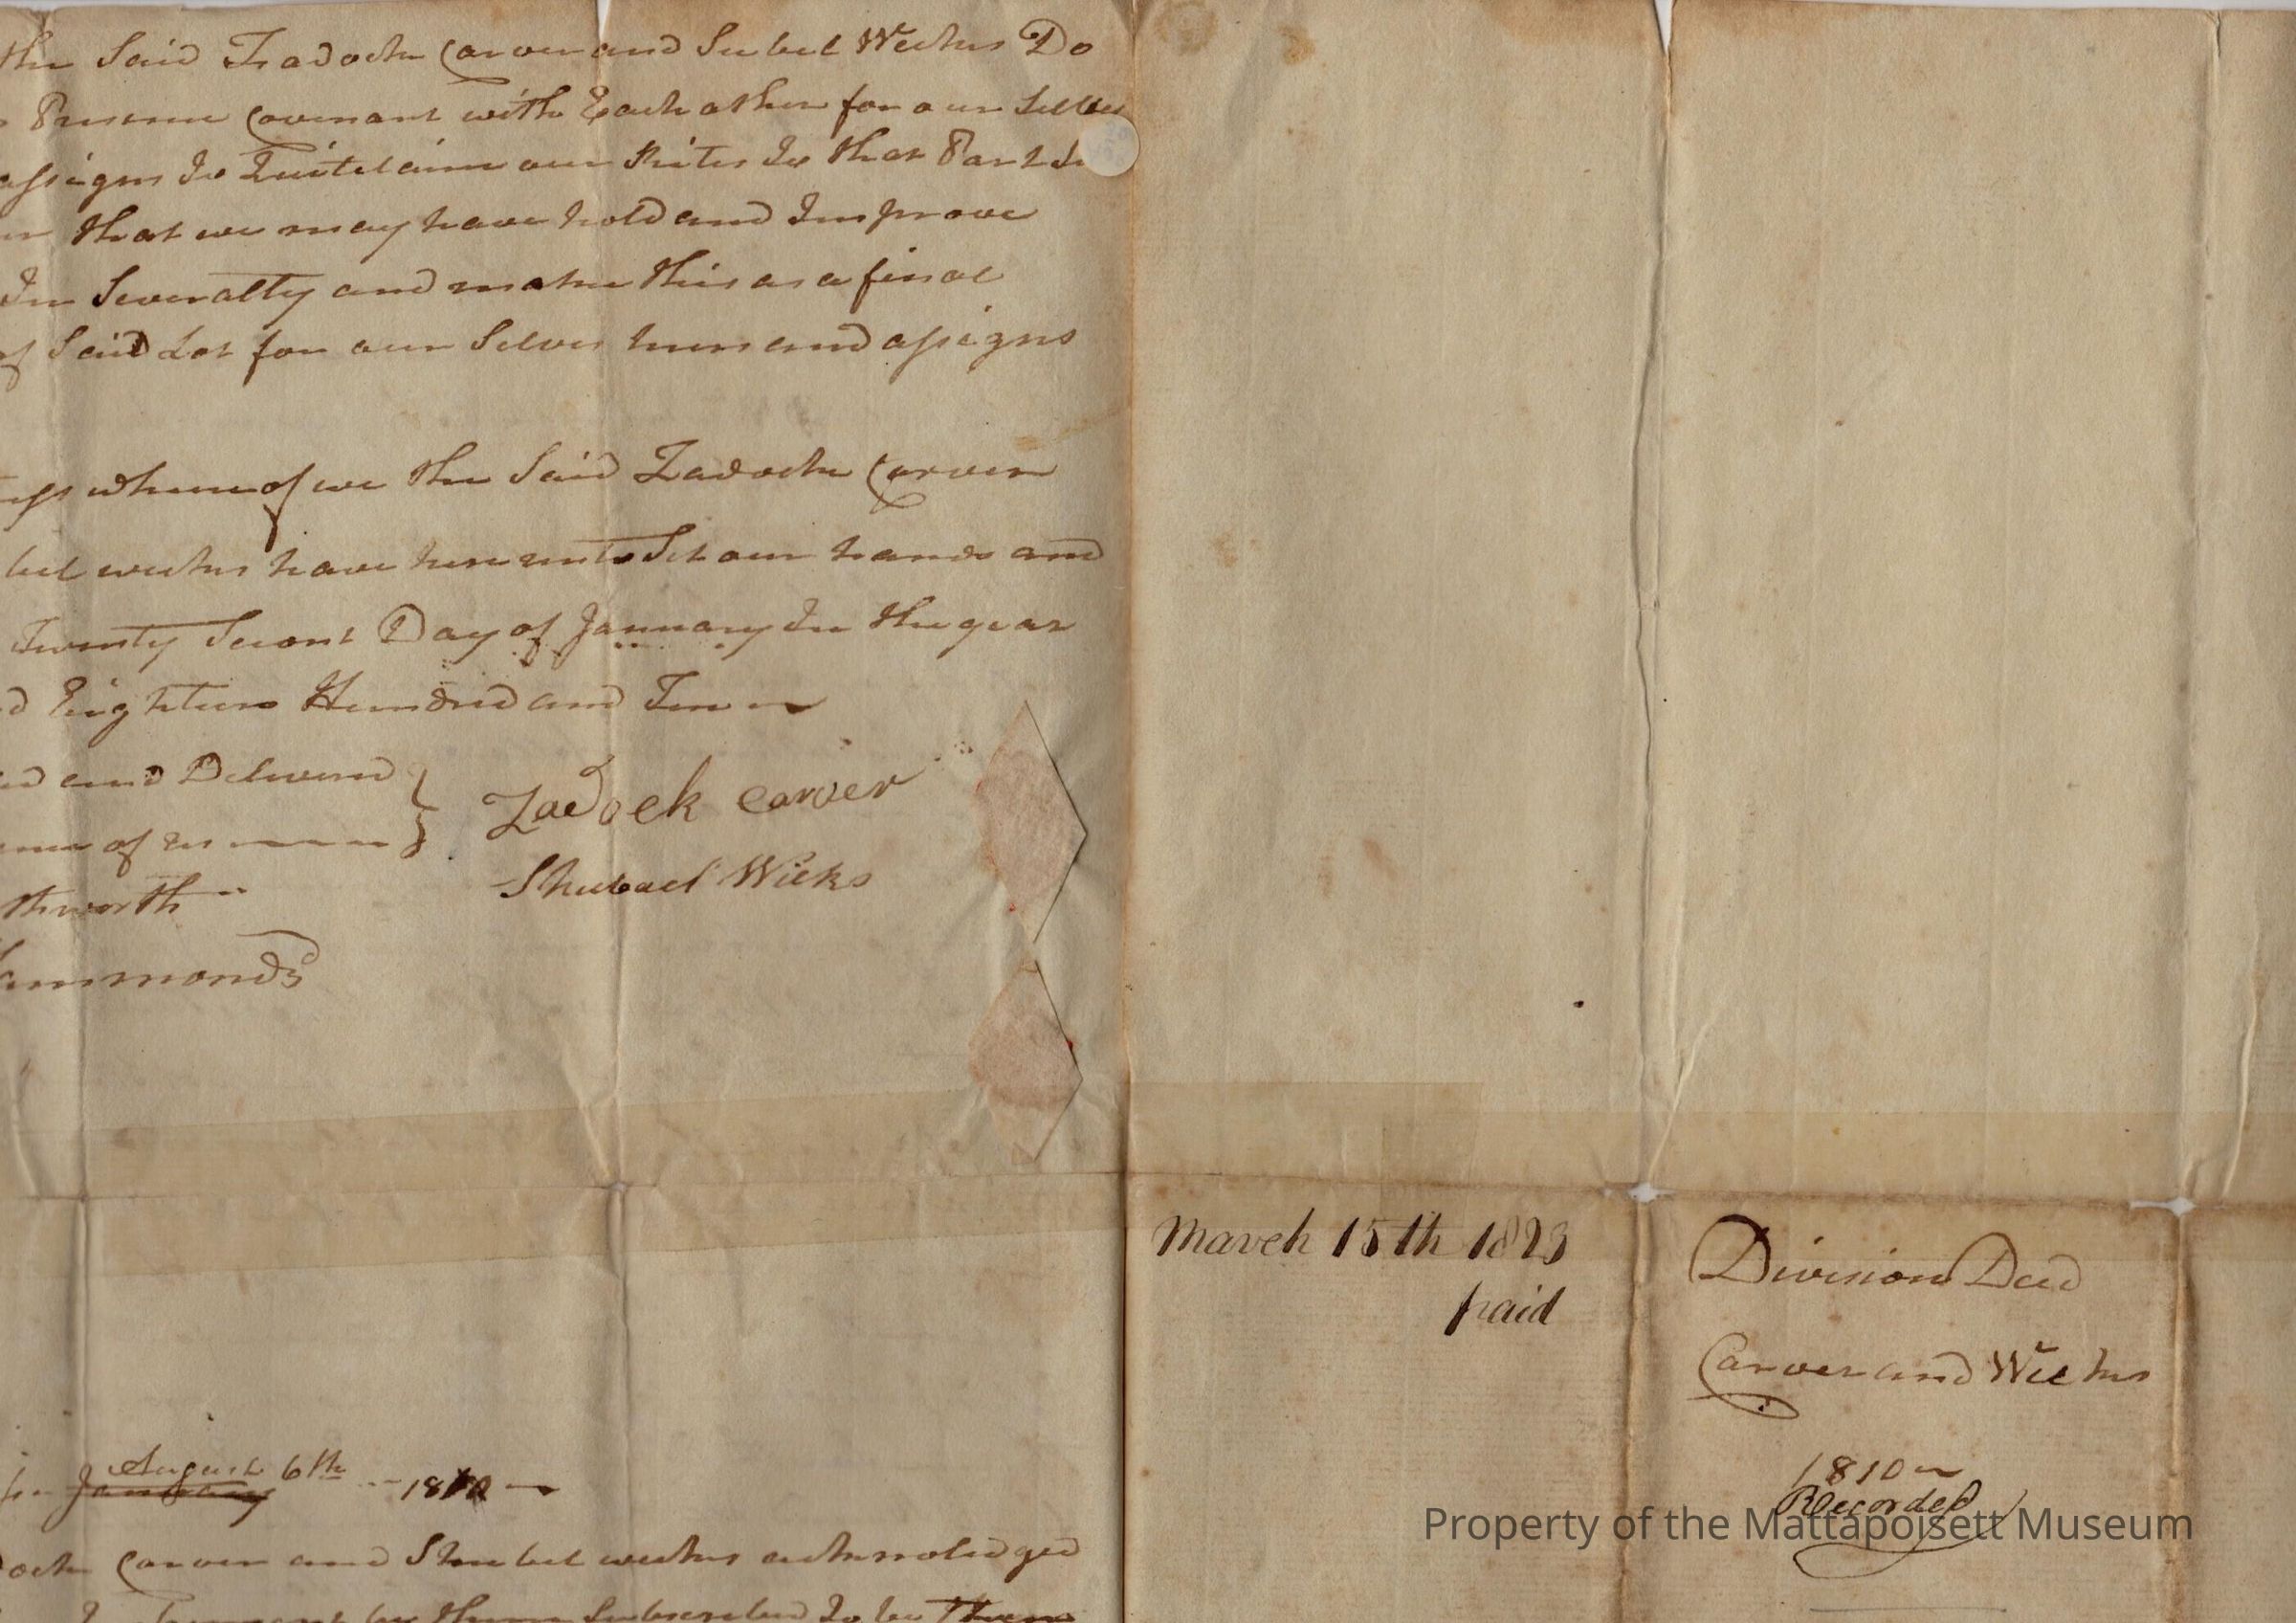 the Said Zadock Carver and Subel Weekes Do
Presence Covenant with Each other for our Selves
assigns To Quitclaim our Rites To that Part
that we may have hold and Improve
In Severalty and make this as a final
of Said Lot for our Selves heirs and assigns
whereof we the Said Zadock Carver
bel weekes have here unto Set our hands and
Twenty Second Day of January In the year
Eighteen Hundred and Ten
and Deliverd
of us
Zadock Carver
Shubael Wicks
thworth
ammond
August 6th
January 1810
ock Carver and Shubel weekes acknoledged
by them Subscribed To be Their
March 15th 1823
paid
Division Deed
Carver and Weekes
1810
Recorded
Property of the Mattapoisett Museum